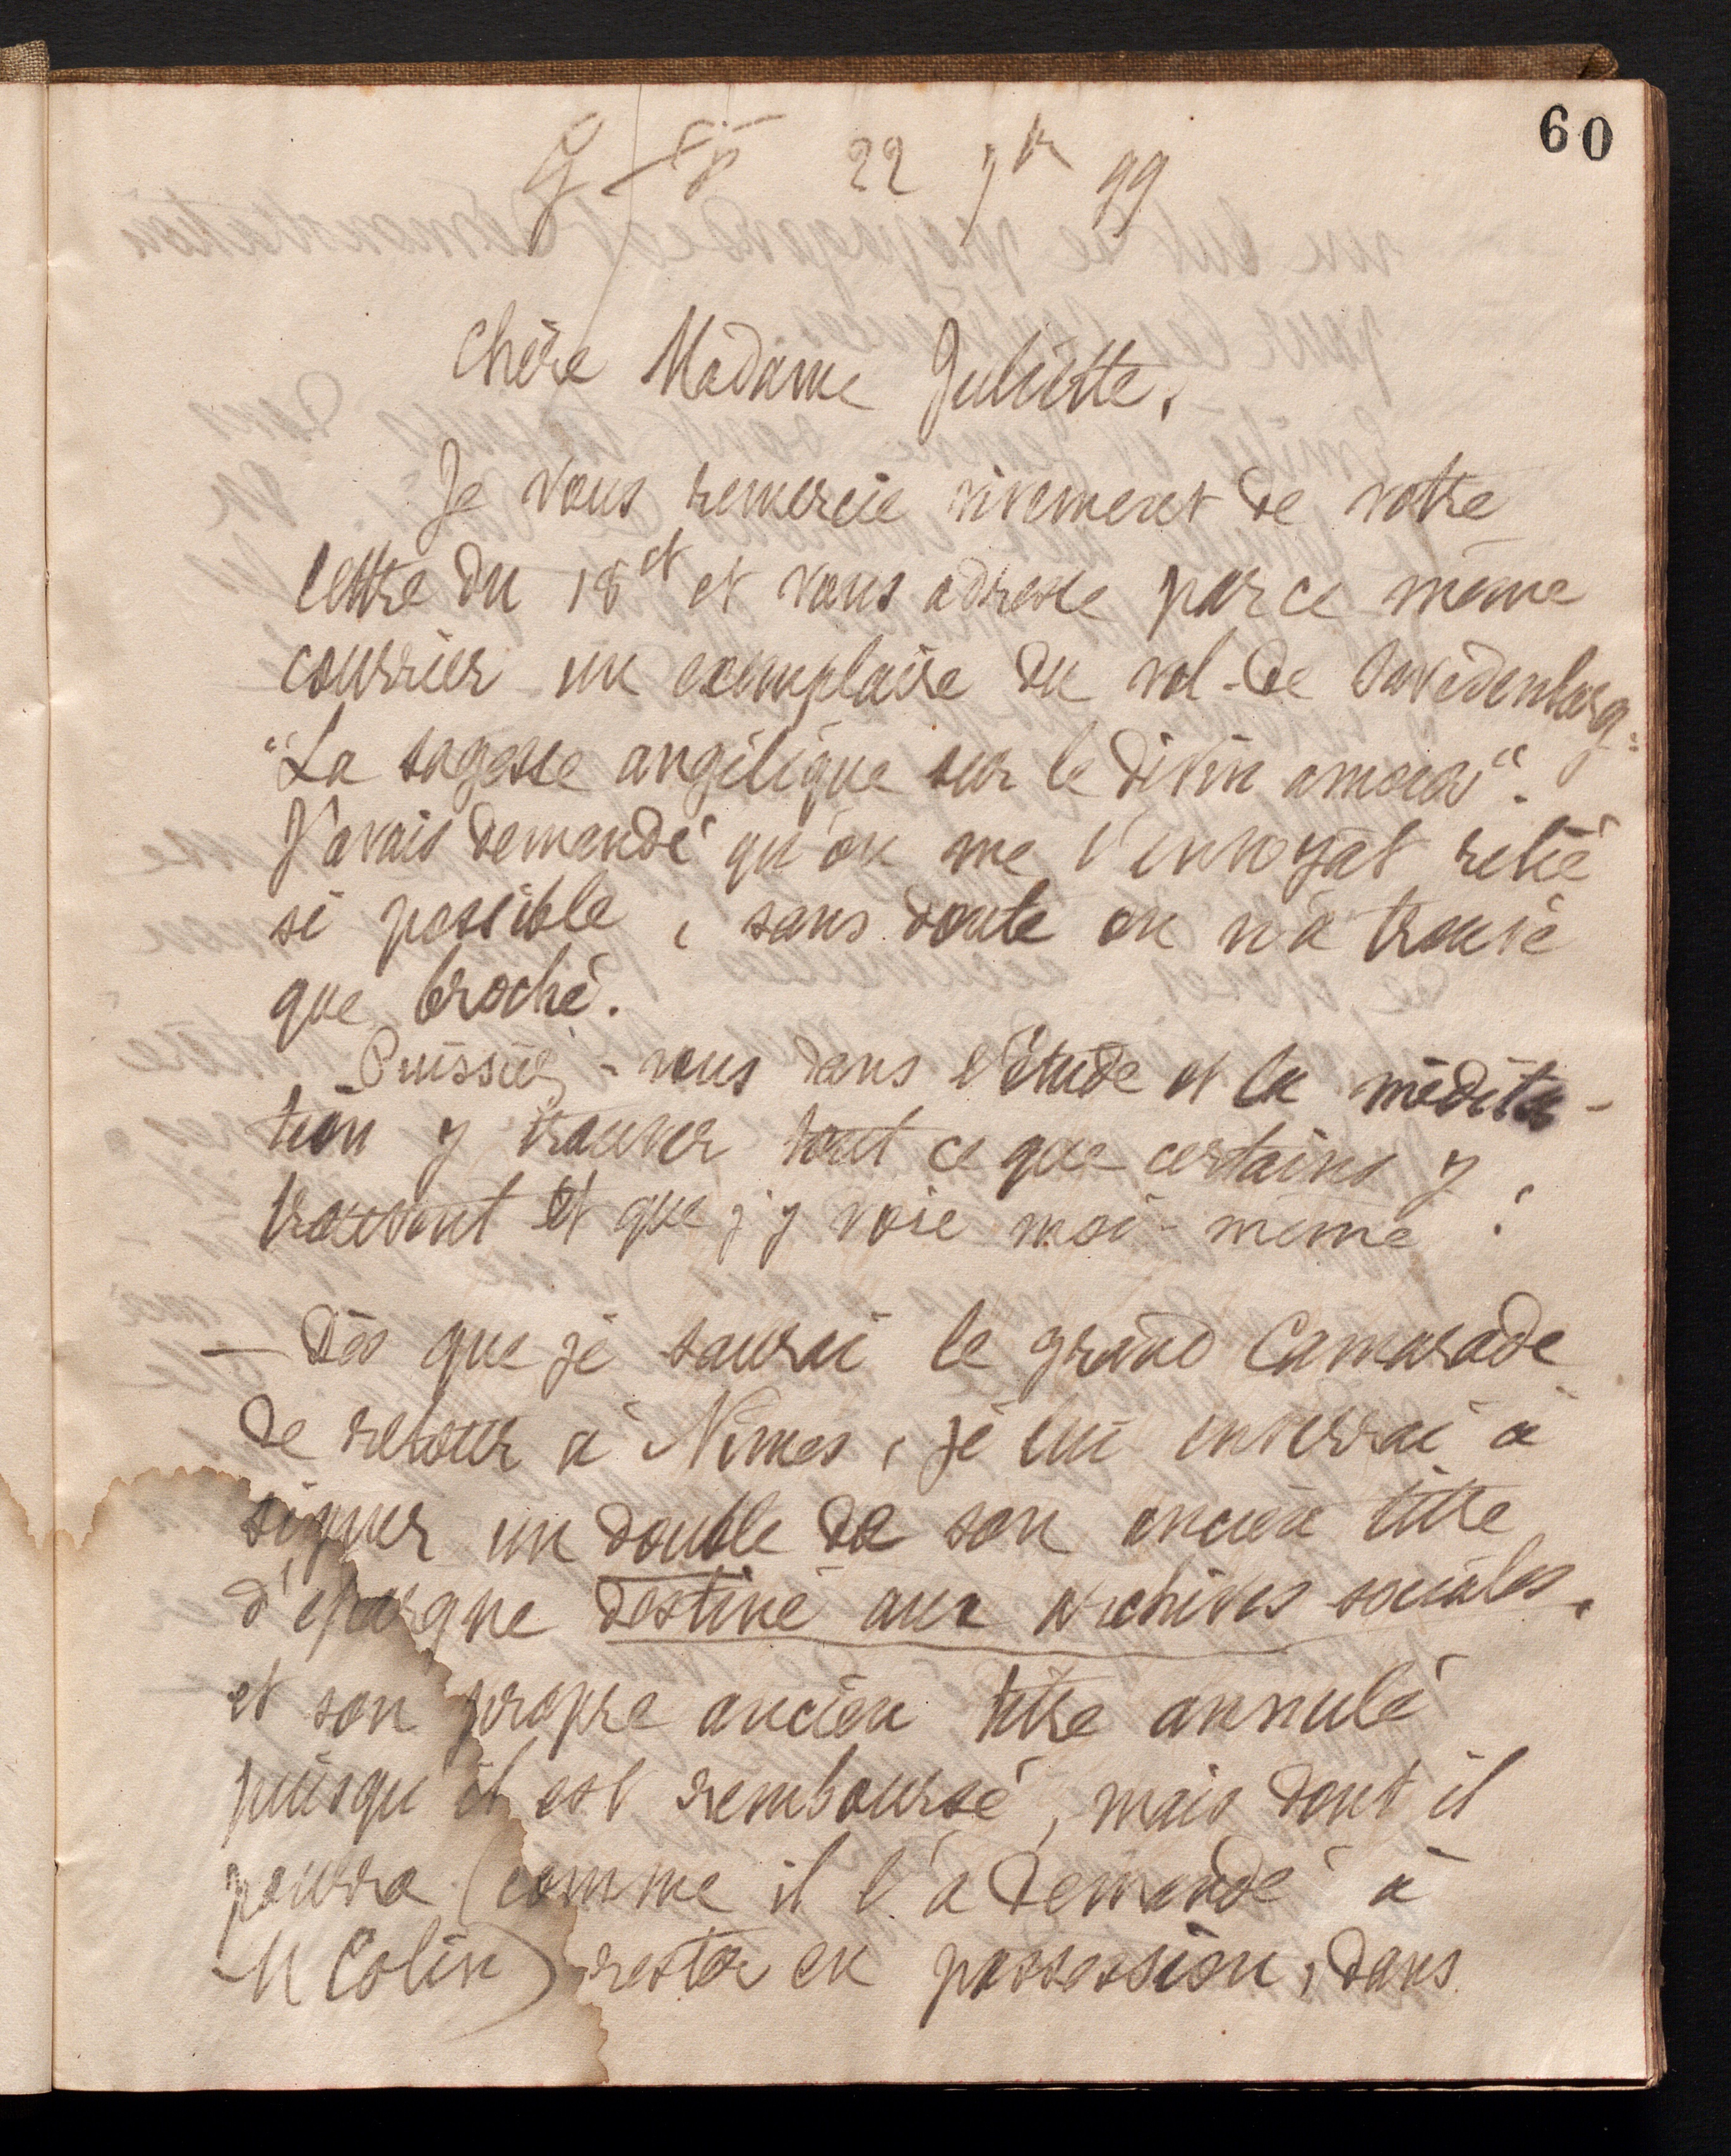 60
22 99
Chère Madame Juliette,
Je vous remercie vivement de votre
lettre du 18 ct et vous adresse par ce même
courrier un exemplaire du vol. de Swedenborg:
"La sagesse angélique sur le divin amour".
J'avais demandé qu'on me l'envoyat relié
si possible, sans doute on n'a trouvé
que broché.
Puissiez-vous dans l'étude et la médita-
tion y trouver tout ce que certains y
trouvent et que j'y vois moi-même !
— Dès que je saurai le grand Camarade
de retour à Nimes, je lui enverrai à
signer un double de son ancien titre
d'épargne destiné aux archives sociales,
et son propre ancien titre annulé
puisqu'il est remboursé, mais dont il
pourra (comme il l'a demandé à
M Colin) rester en possession, dans